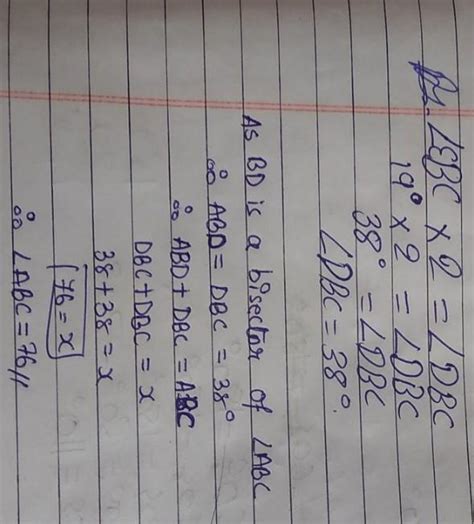 ∠EBC × 2 = ∠DBC
19° × 2 = ∠DBC
38° = ∠DBC
∠DBC = 38°.
As BD is a bisector of ∠ABC
∴ ABD = DBC = 38°
∴ ABD + DBC = ABC
DBC + DBC = x
38 + 38 = x
76 = x
∴ ∠ABC = 76//